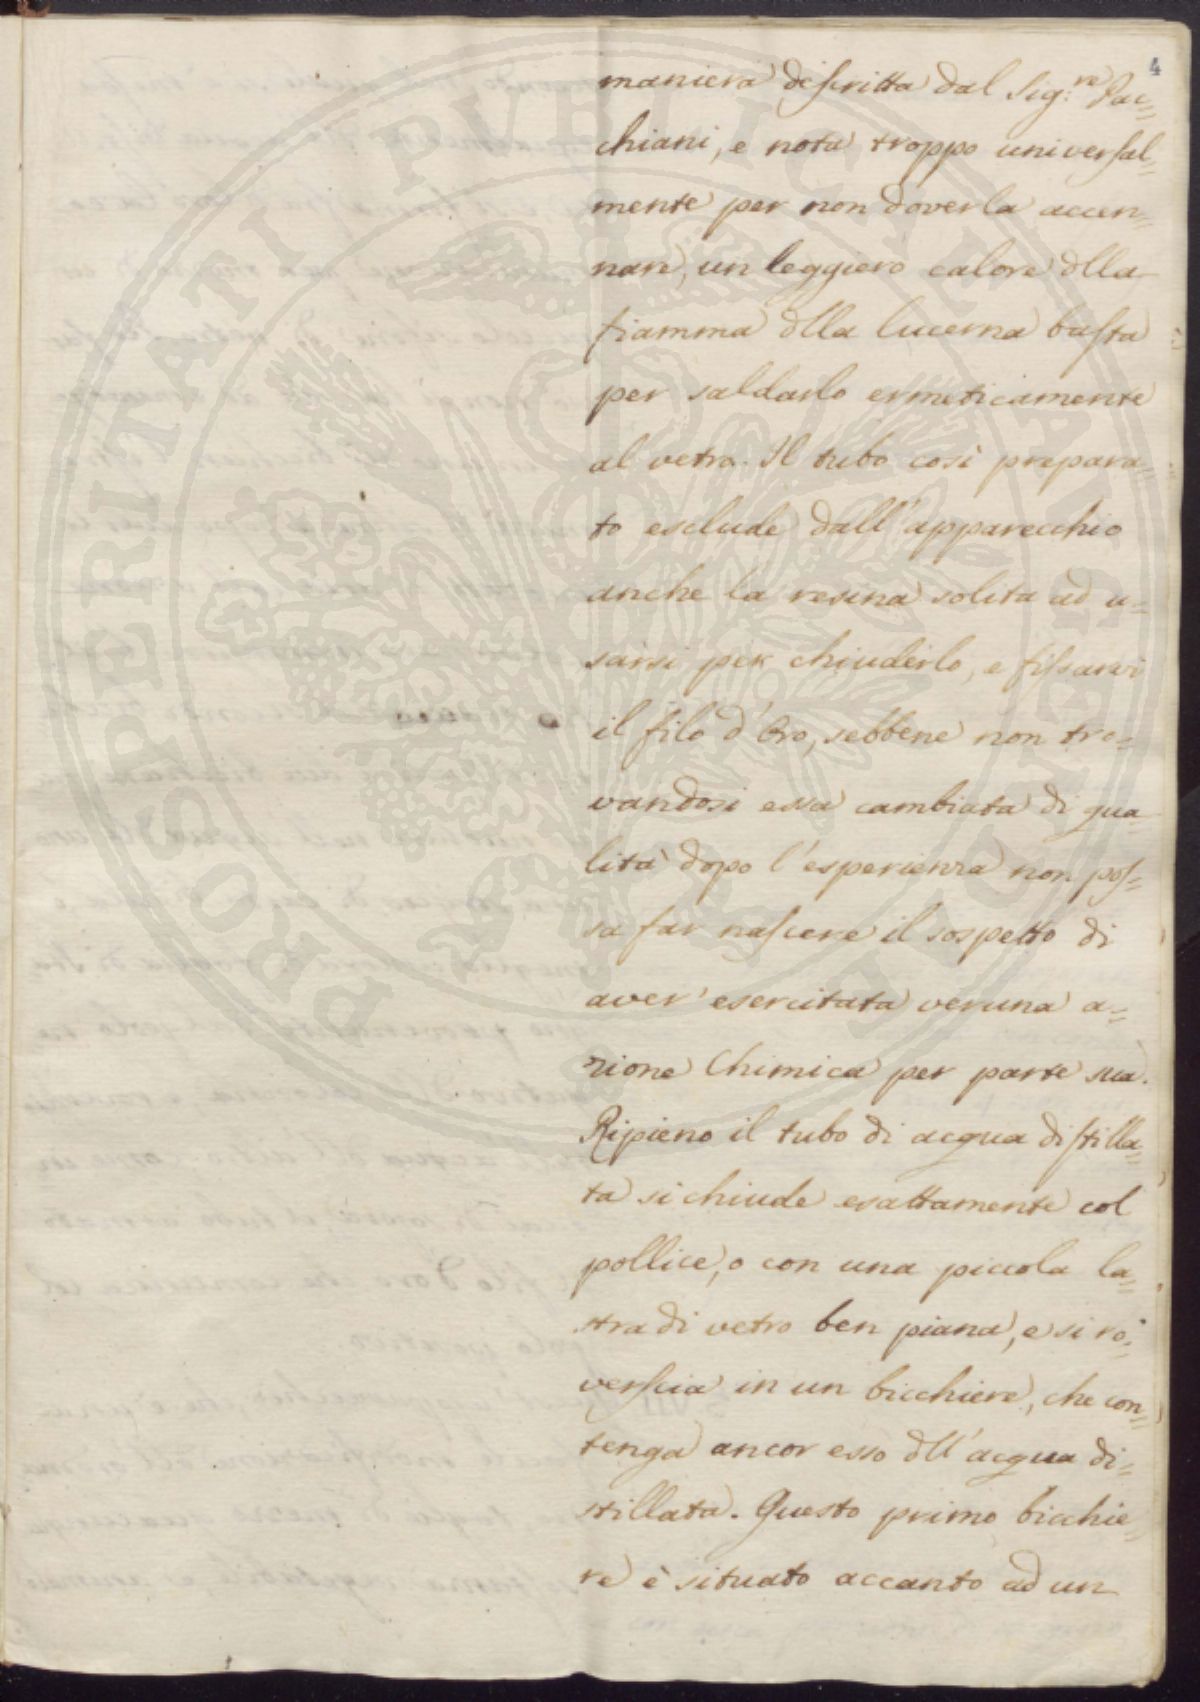 4
maniera descritta dal Sig:re Pac=
chiani, e nota troppo universal=
mente per non doverla accen=
nare, un leggiero calore dlla
fiamma dlla lucerna basta
per saldarlo ermeticamente
al vetro. Il tubo così prepara=
to esclude dall'apparecchio
anche la resina solita ad u=
sarsi per chiuderlo, e fissarvi
il filo d'Oro, sebbene non tro=
vandosi essa cambiata di qua=
lità dopo l'esperienza non pos=
sa far nascere il sospetto di
aver' esercitata veruna a=
zione Chimica per parte sua.
Ripieno il tubo di acqua distilla=
ta si chiude esattamente col
pollice, o con una piccola la=
stra di vetro ben piana, e si ro=
verscia in un bicchiere, che con=
tenga ancor esso dll'acqua di=
stillata. Questo primo bicchie=
re è situato accanto ad un
PROSPERITATI PUBLICAE AUGENDAE